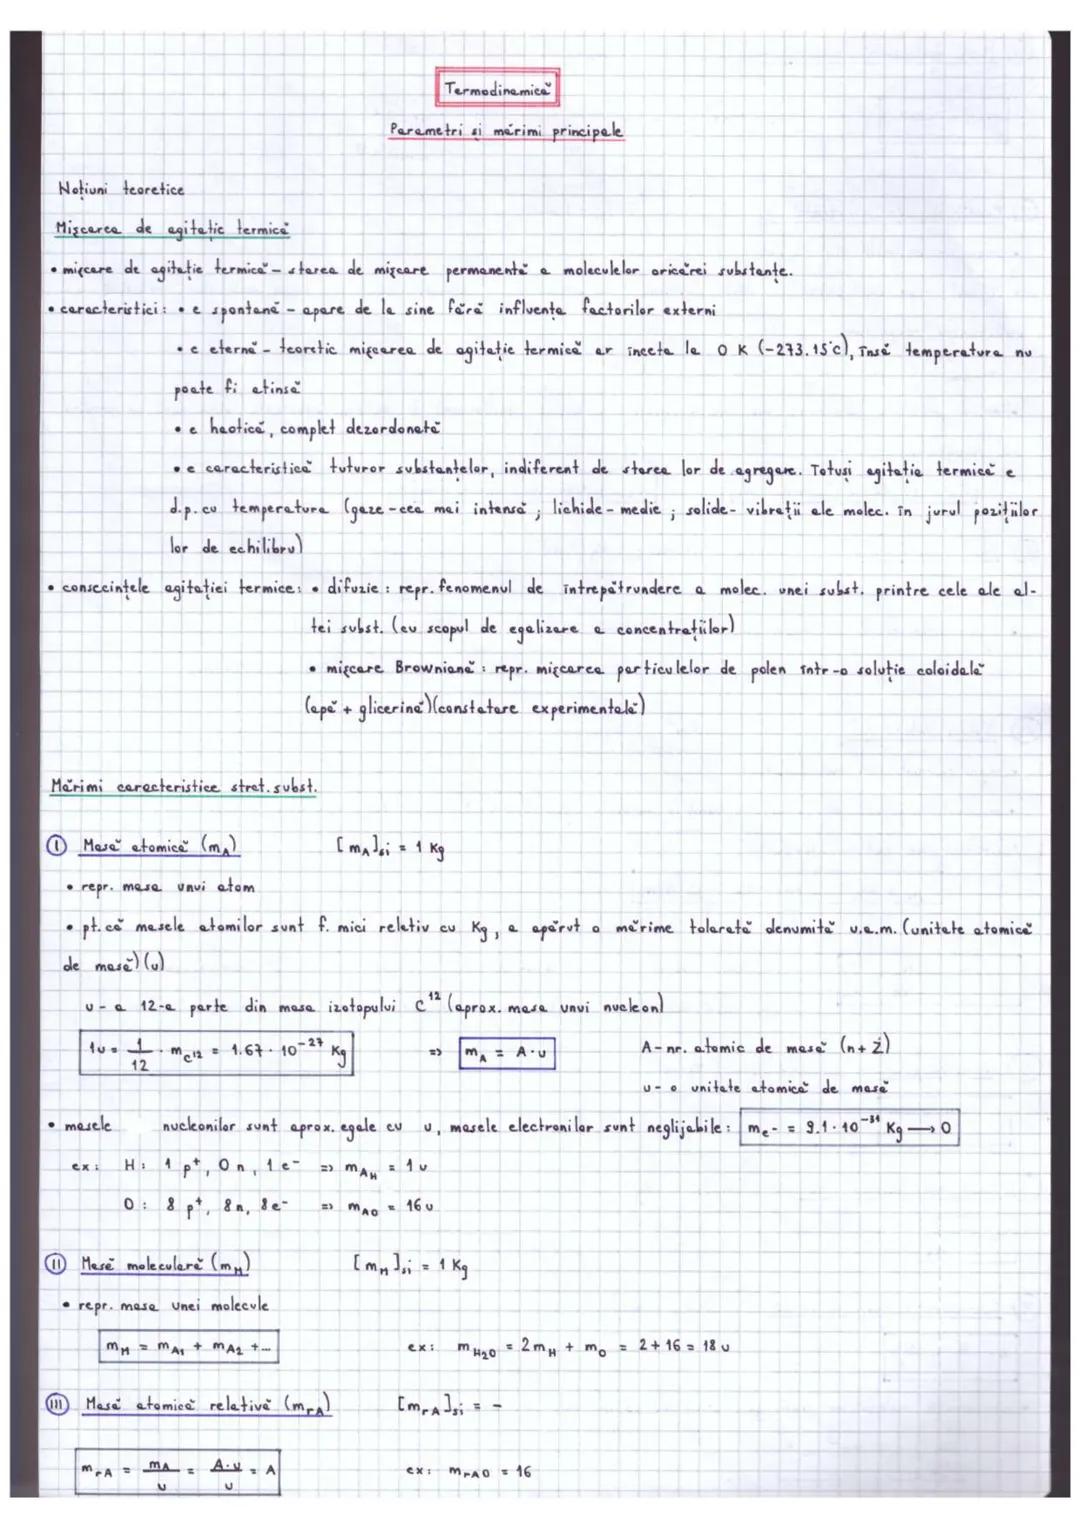 Termodinamică
Parametri și mărimi principale
Noțiuni teoretice
Mișcarea de agitație termică
• mișcare de agitație termică - starea de mișcare permanentă a moleculelor oricărei substanțe.
• caracteristici: • e spontană - apare de la sine fără influența factorilor externi
• e eternă - teoretic mișcarea de agitație termică ar înceta la 0 K (-273.15°C), însă temperatura nu
poate fi atinsă
• e haotică, complet dezordonată
• e caracteristică tuturor substanțelor, indiferent de starea lor de agregare. Totuși agitația termică e
d.p. cu temperatura (gaze - cea mai intensă ; lichide - medie ; solide - vibrații ale molec. în jurul pozițiilor
lor de echilibru)
• consecințele agitației termice: • difuzie : repr. fenomenul de întrepătrundere a molec. unei subst. printre cele ale al-
tei subst. (cu scopul de egalizare a concentrațiilor)
• mișcare Browniană : repr. mișcarea particulelor de polen într-o soluție coloidală
(apă + glicerină)(constatare experimentală)
Mărimi caracteristice strct. subst.
I Masă atomică (m_A) [m_A]si = 1 Kg
• repr. masa unui atom
• pt. că masele atomilor sunt f. mici relativ cu Kg, a apărut o mărime tolerată denumită u.a.m. (unitate atomică
de masă) (u)
u - a 12-a parte din masa izotopului C¹² (aprox. masa unui nucleon)
1u = 1/12 · m_C12 = 1.67 · 10⁻²⁷ Kg => m_A = A·u A - nr. atomic de masă (n+Z)
u - o unitate atomică de masă
• masele nucleonilor sunt aprox. egale cu u, masele electronilor sunt neglijabile : m_e- = 9.1 · 10⁻³¹ Kg → 0
ex: H: 1 p⁺, 0n, 1e⁻ => m_AH = 1u
O: 8 p⁺, 8n, 8e⁻ => m_AO = 16u
II Masă moleculară (m_M) [m_M]si = 1 Kg
• repr. masa unei molecule
m_M = m_A1 + m_A2 + ... ex: m_H2O = 2m_H + m_O = 2+16 = 18 u
III Masă atomică relativă (m_rA) [m_rA]si = -
m_rA = m_A/u = A·u/u = A ex: m_rAO = 16